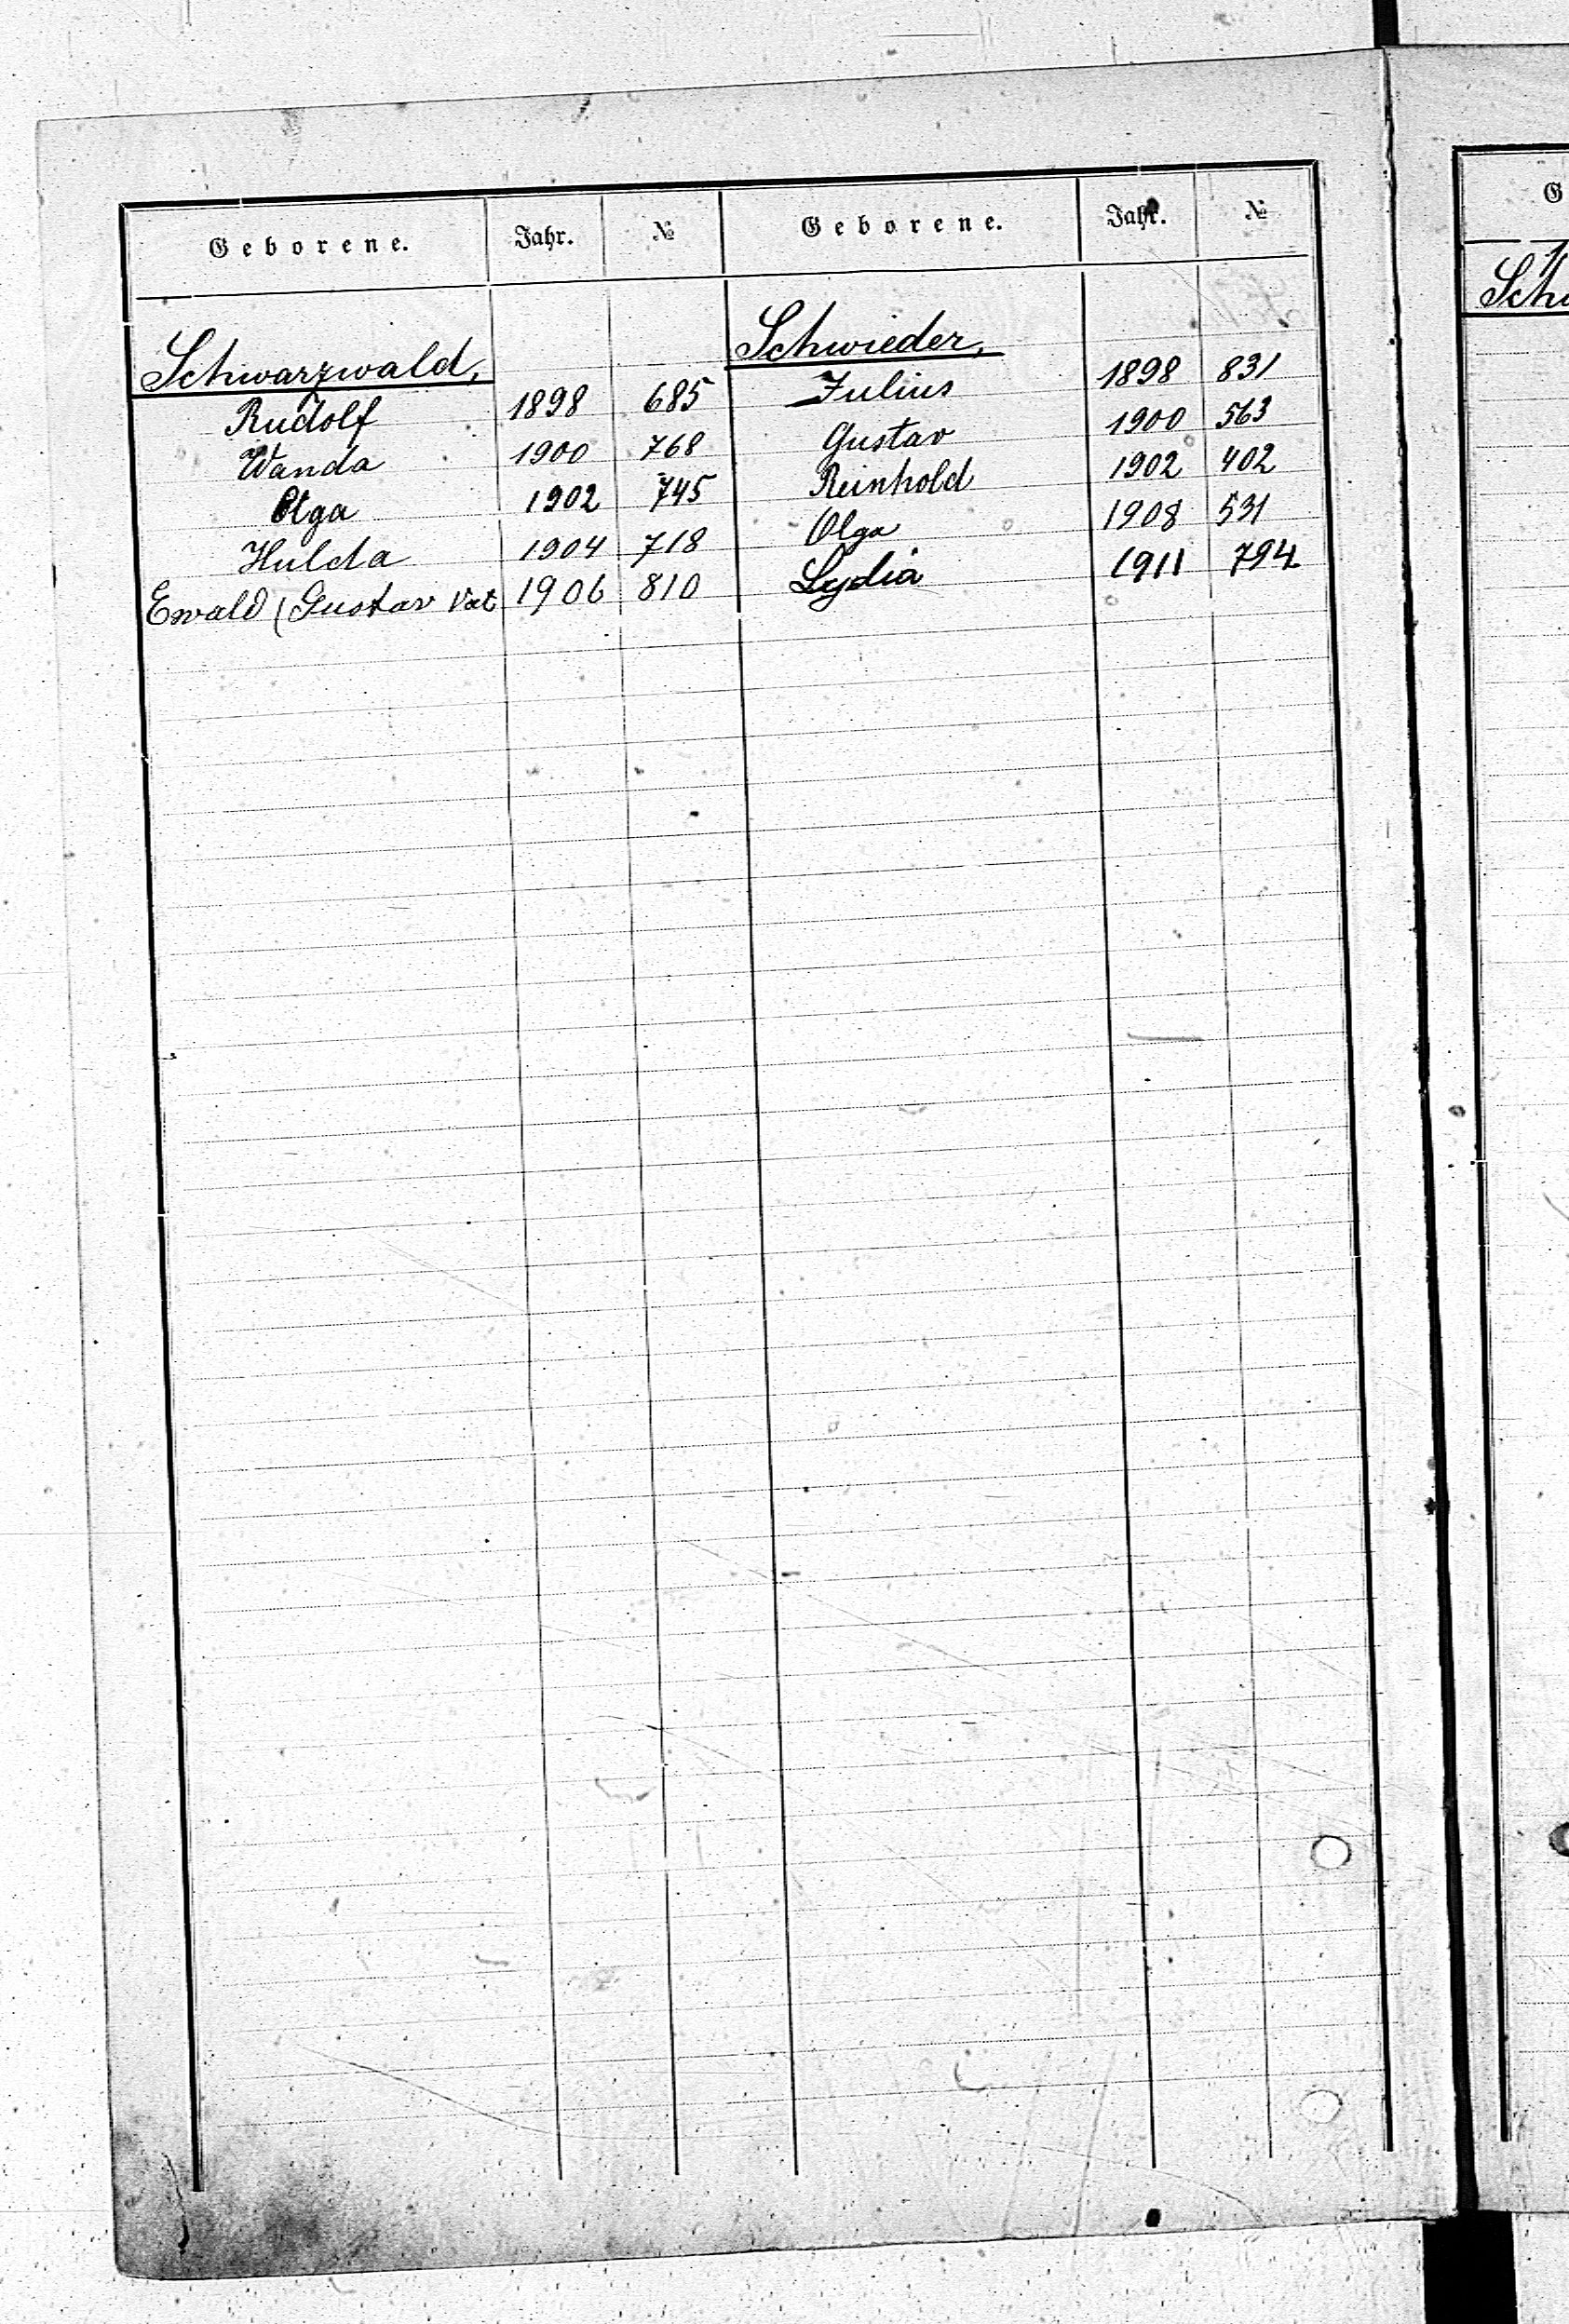 Geborene. Jahr. № Geborene. Jahr. №
Schwarzwald,
Rudolf 1898 685
Wanda 1900 768
Olga 1902 745
Hulda 1904 718
Ewald (Gustav Vat 1906 810
Schwieder,
Julius 1898 831
Gustav 1900 563
Reinhold 1902 402
Olga 1908 531
Lydia 1911 794
G
Sch